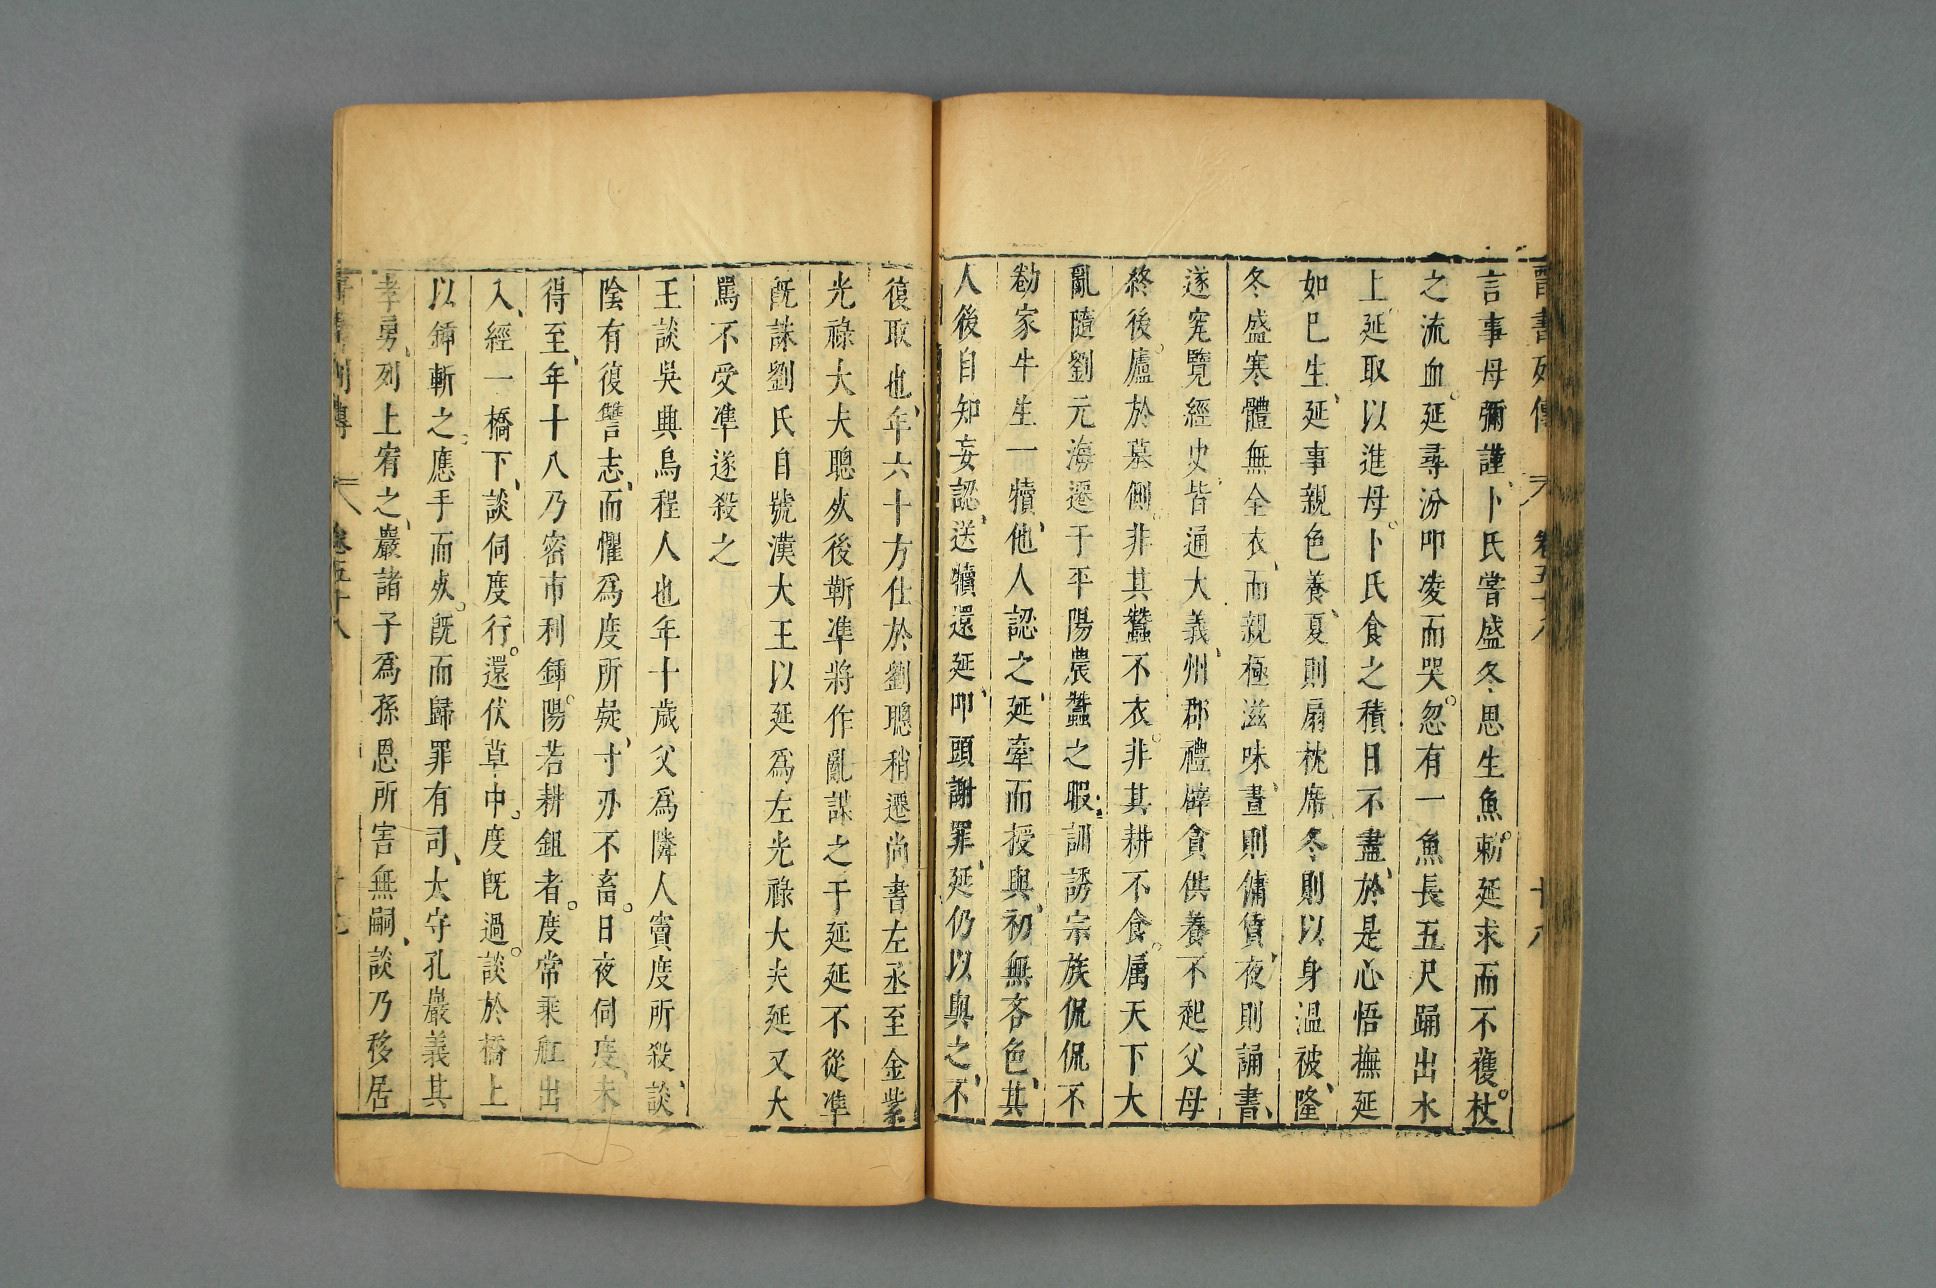 晉書列傳 卷五十八 十八
言事母彌謹卜氏嘗盛冬思生魚敕延求而不獲杖
之流血延尋汾叩凌而哭忽有一魚長五尺踊出水
上延取以進母卜氏食之積日不盡於是心悟撫延
如己生延事親色養夏則扇枕席冬則以身溫被隆
冬盛寒體無全衣而親極滋味晝則傭賃夜則誦書
遂究覽經史皆通大義州郡禮辟貪供養不起父母
終後廬於墓側非其蠶不衣非其耕不食属天下大
亂隨劉元海遷于平陽農蠶之暇訓誘宗族侃侃不
勌家牛生一犢他人認之延牽而授與初無吝色其
人後自知妄認送犢還延叩頭謝罪延仍以與之不
復取也年六十方仕於劉聰稍遷尚書左丞至金紫
光祿大夫聰歿後靳準將作亂謀之于延延不從準
既誅劉氏自號漢大王以延爲左光祿大夫延又大
罵不受準遂殺之
王談吳興烏程人也年十歲父爲隣人竇度所殺談
陰有復讐志而懼爲度所疑寸刃不畜日夜伺度未
得至年十八乃密市利鍤陽若耕鉏者度常乘舡出
入經一橋下談伺度行還伏草中度既過談於橋上
以鍤斬之應手而歿既而歸罪有司太守孔巖義其
孝勇列上宥之巖諸子爲孫恩所害無嗣談乃移居
晉書列傳 卷五十八